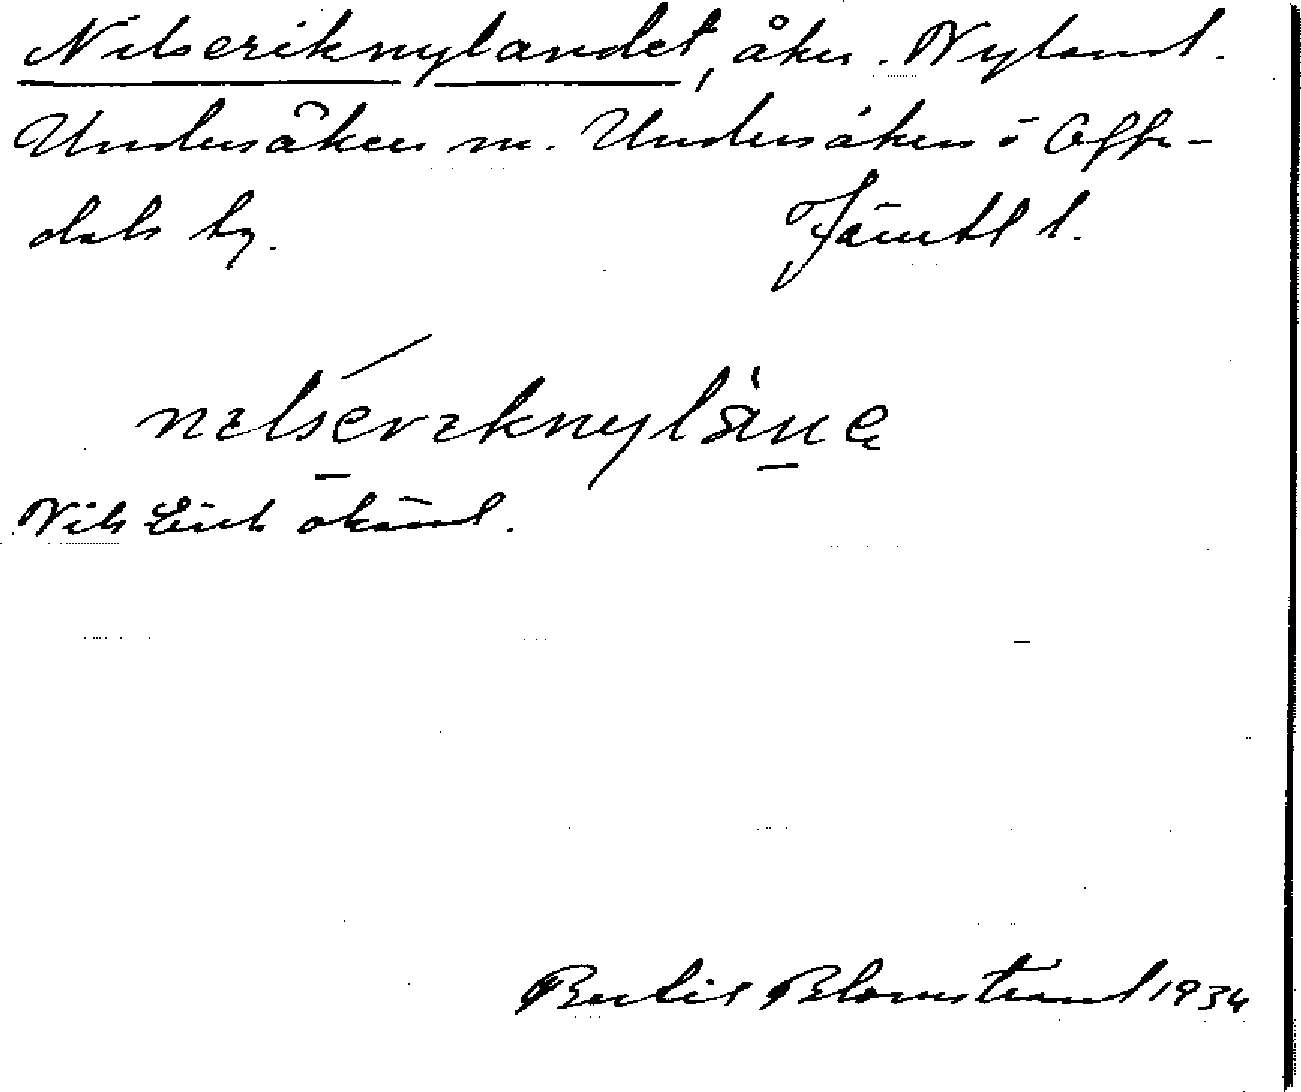 Nilseriknylandet, åker. Nyland.
Undersåkers sn. Undersåkers o Offer-
dals tg. Jämtl l.
nilseriknyläne
Nils Erik okänd.
Bertil Blomstrand 1934